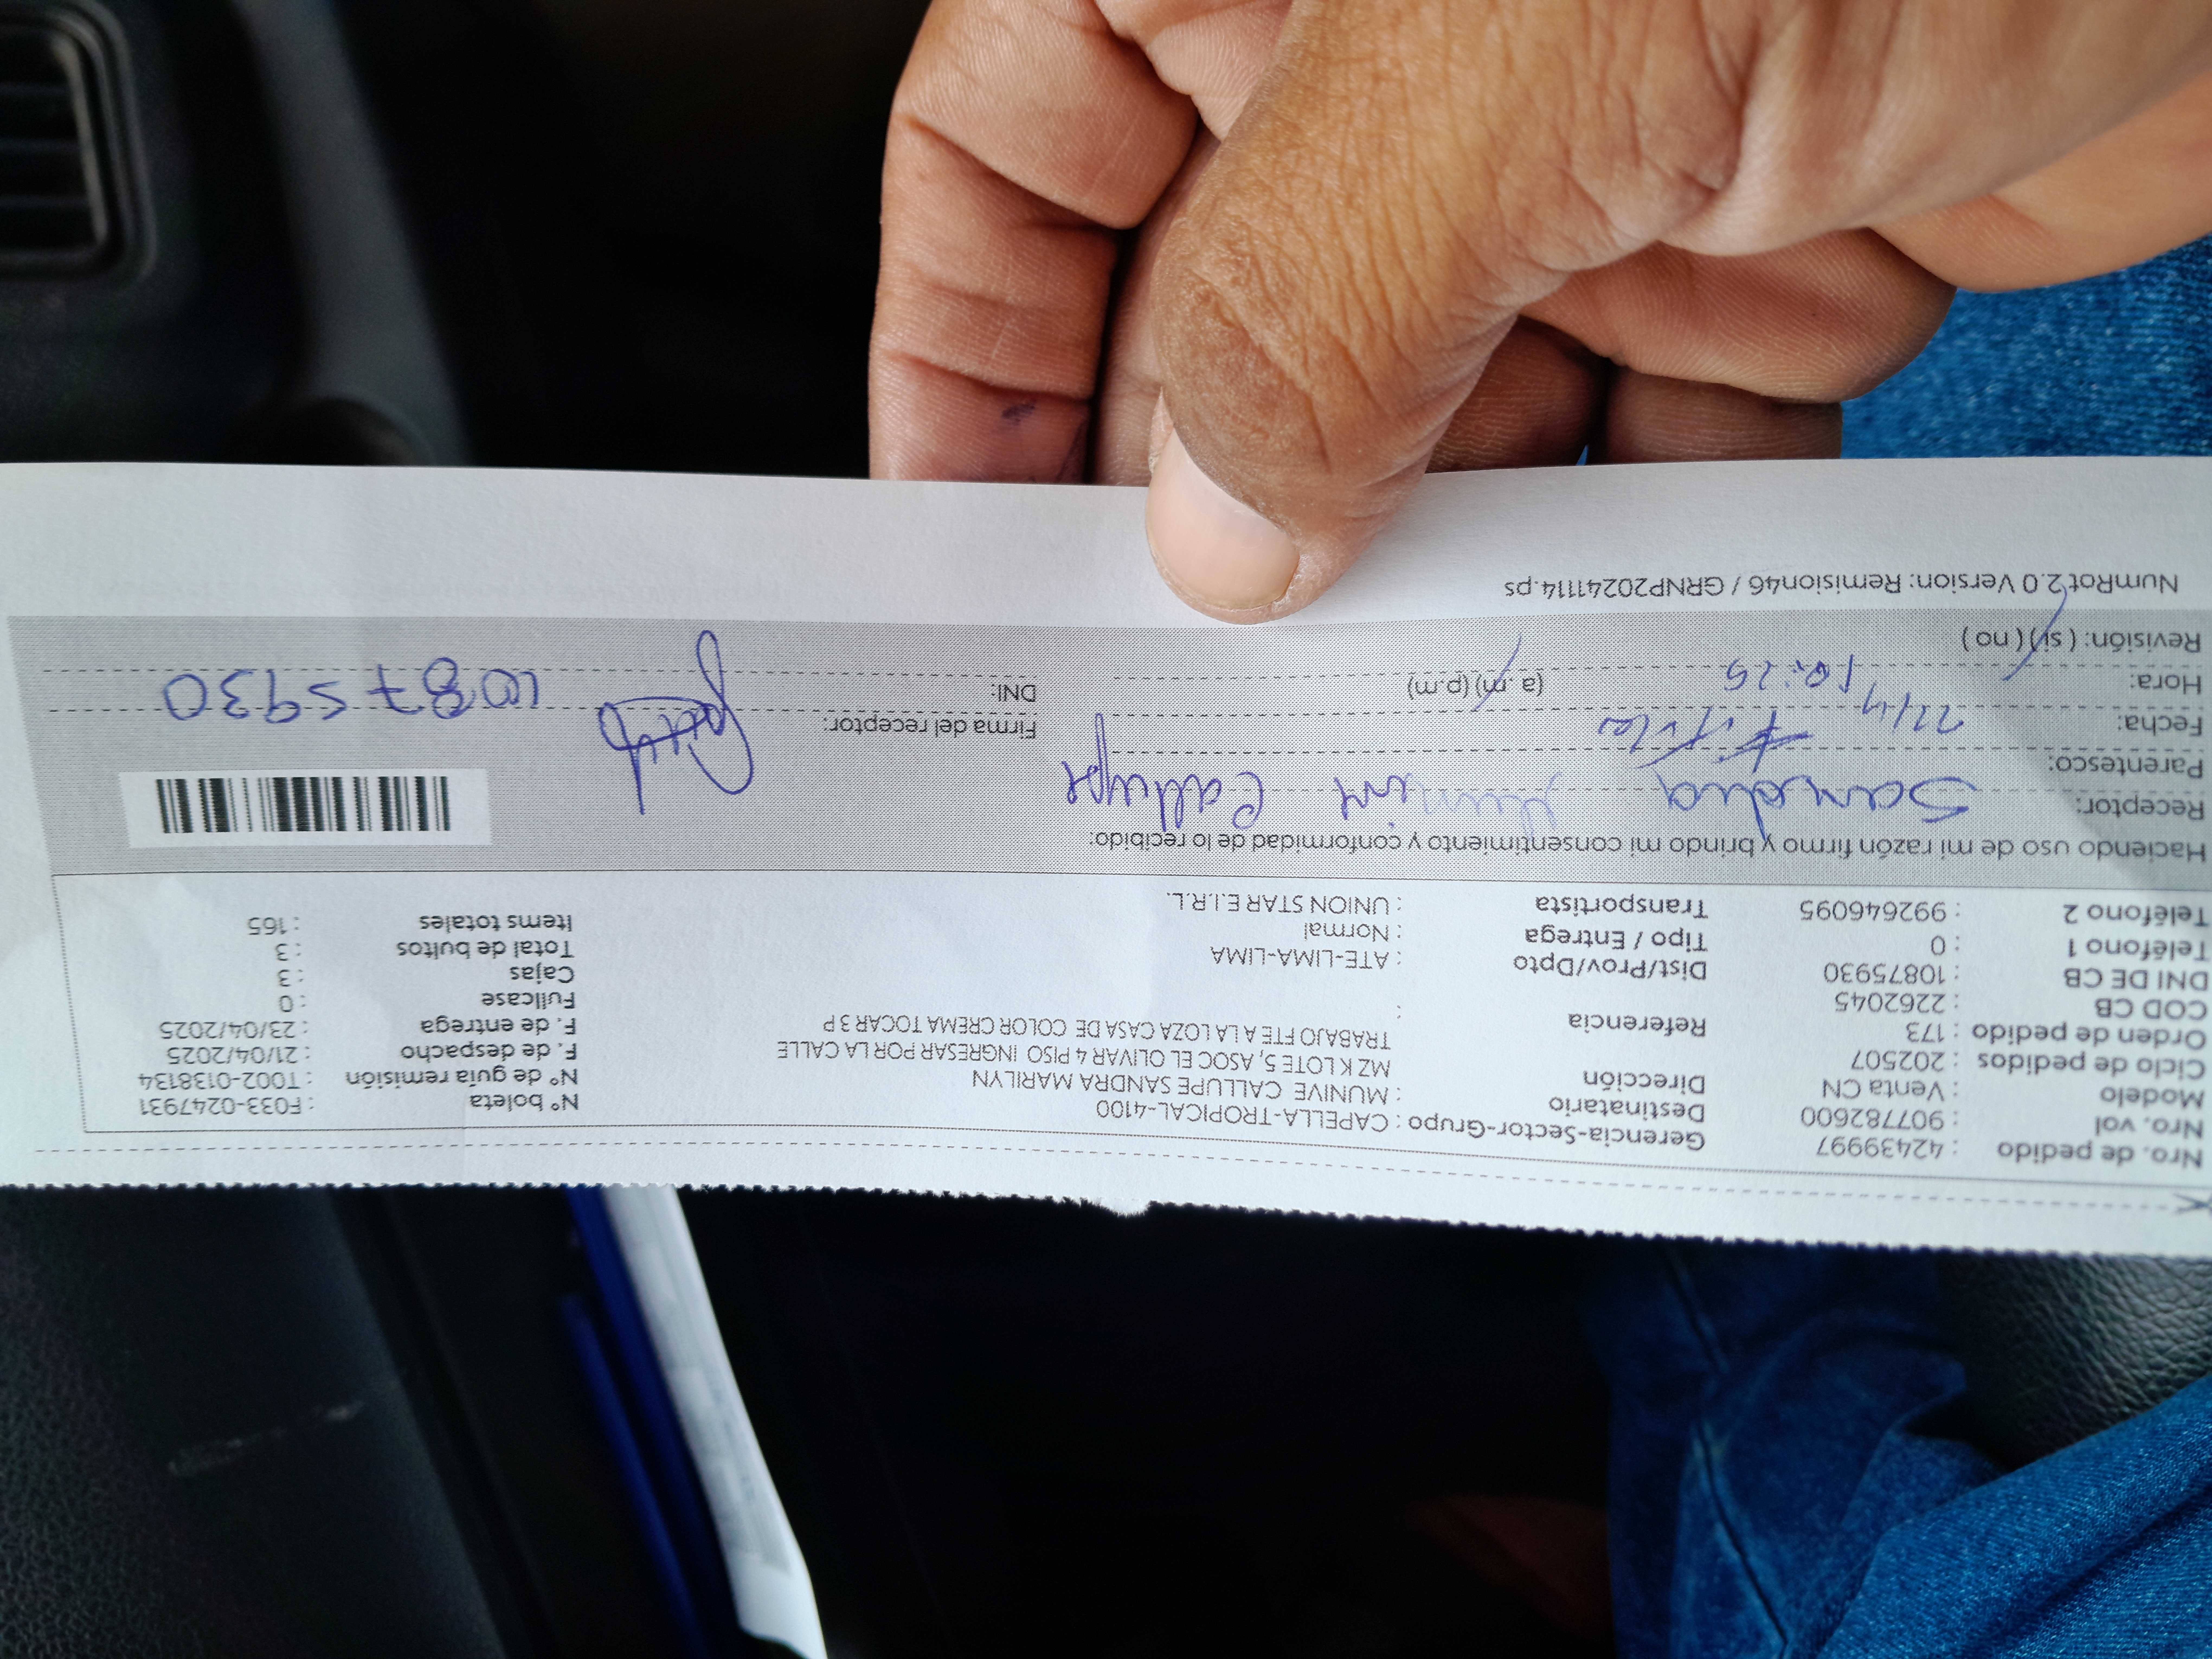 Nro. de pedido : 42439997 Gerencia-Sector-Grupo : CAPELLA-TROPICAL-4100 Nº boleta : F033-0247931
Nro. vol : 907782600 Destinatario : MUNIVE CALLUPE SANDRA MARILYN Nº de guía remisión : T002-0138134
Modelo : Venta CN Dirección MZ K LOTE 5, ASOC EL OLIVAR 4 PISO INGRESAR POR LA CALLE F. de despacho : 21/04/2025
Ciclo de pedidos : 202507 TRABAJO FTE A LA LOZA CASA DE COLOR CREMA TOCAR 3 P F. de entrega : 23/04/2025
Orden de pedido : 173 Referencia : Fullcase : 0
COD CB : 2262045 Cajas : 3
DNI DE CB : 10875930 Dist/Prov/Dpto : ATE-LIMA-LIMA Total de bultos : 3
Teléfono 1 : 0 Tipo / Entrega : Normal Items totales : 165
Teléfono 2 : 992646095 Transportista : UNION STAR E.I.R.L.
Haciendo uso de mi razón firmo y brindo mi consentimiento y conformidad de lo recibido:
Receptor: Sandra Munive Callupe
Parentesco: Titular
Fecha: Firma del receptor:
Hora: 10:25 (a.m) (p.m) DNI: 10875930
Revisión: ( si ) ( no )
NumRot 2.0 Version: Remision46 / GRNP20241114.ps